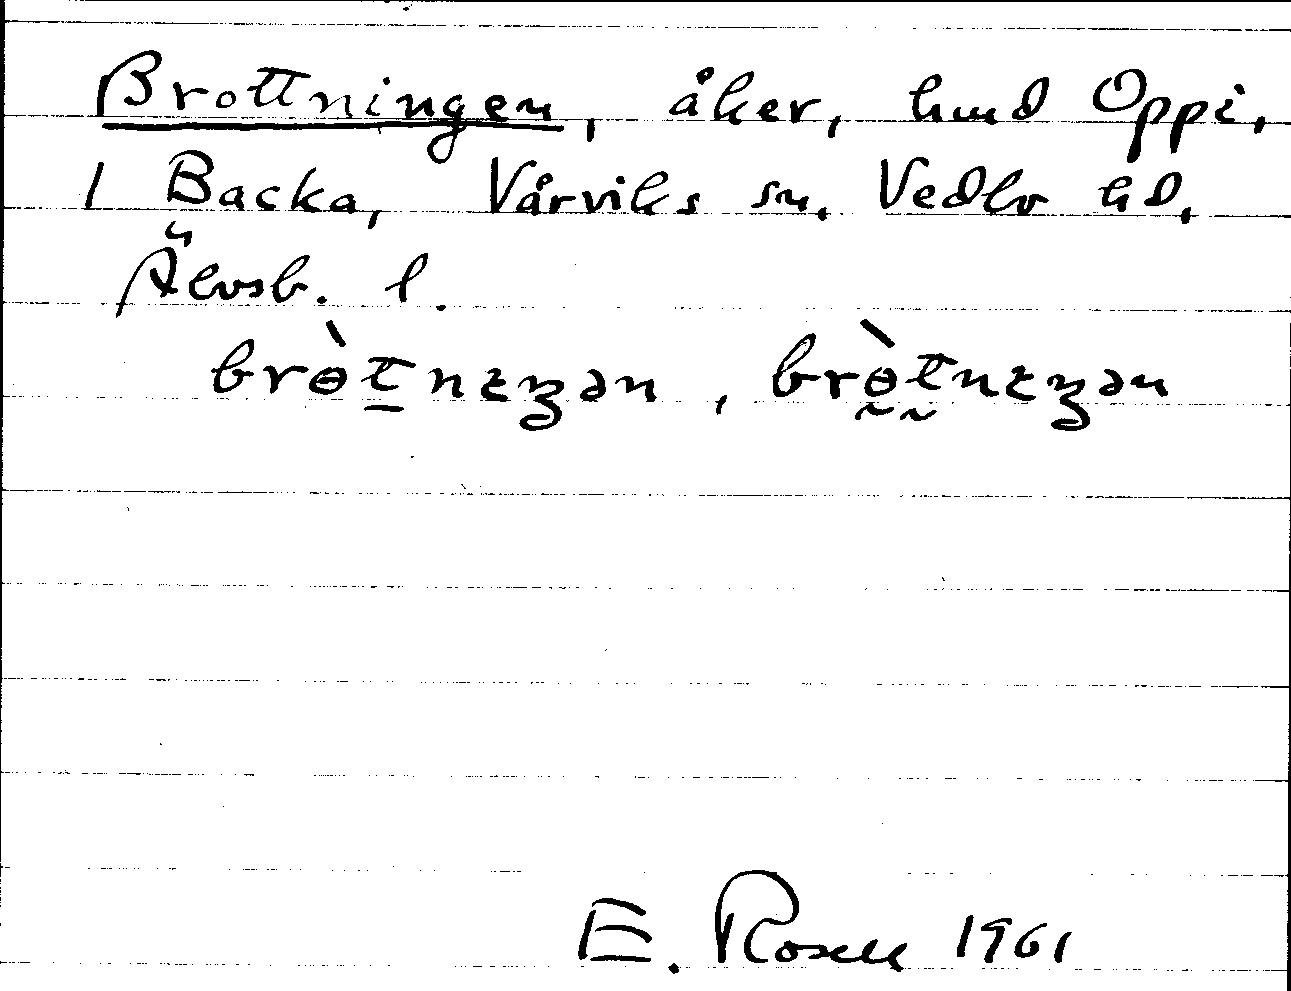 Brottningen, åker, hmd Oppi,
1 Backa, Vårviks sn. Vedbo hd,
Älvsb. l.
brɵ̀t̠nɪŋən, brɵ̰̀t̰nɪŋən
E. Rosell 1961